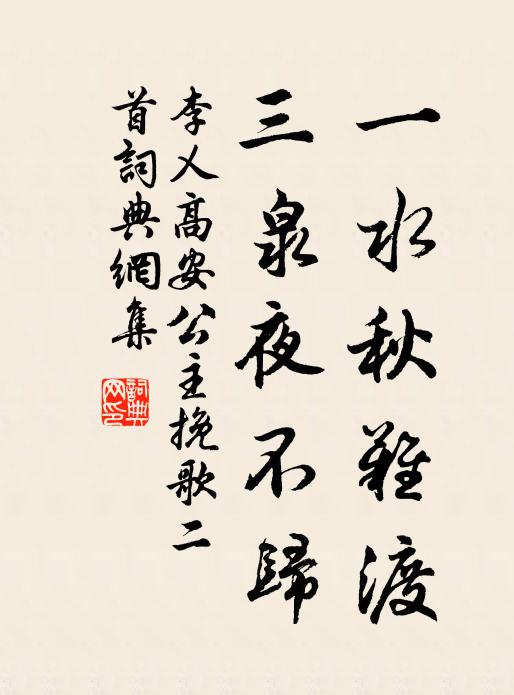 一水秋難渡
三泉夜不歸
李乂高安公主挽歌二
首詞典網集
詞典網印